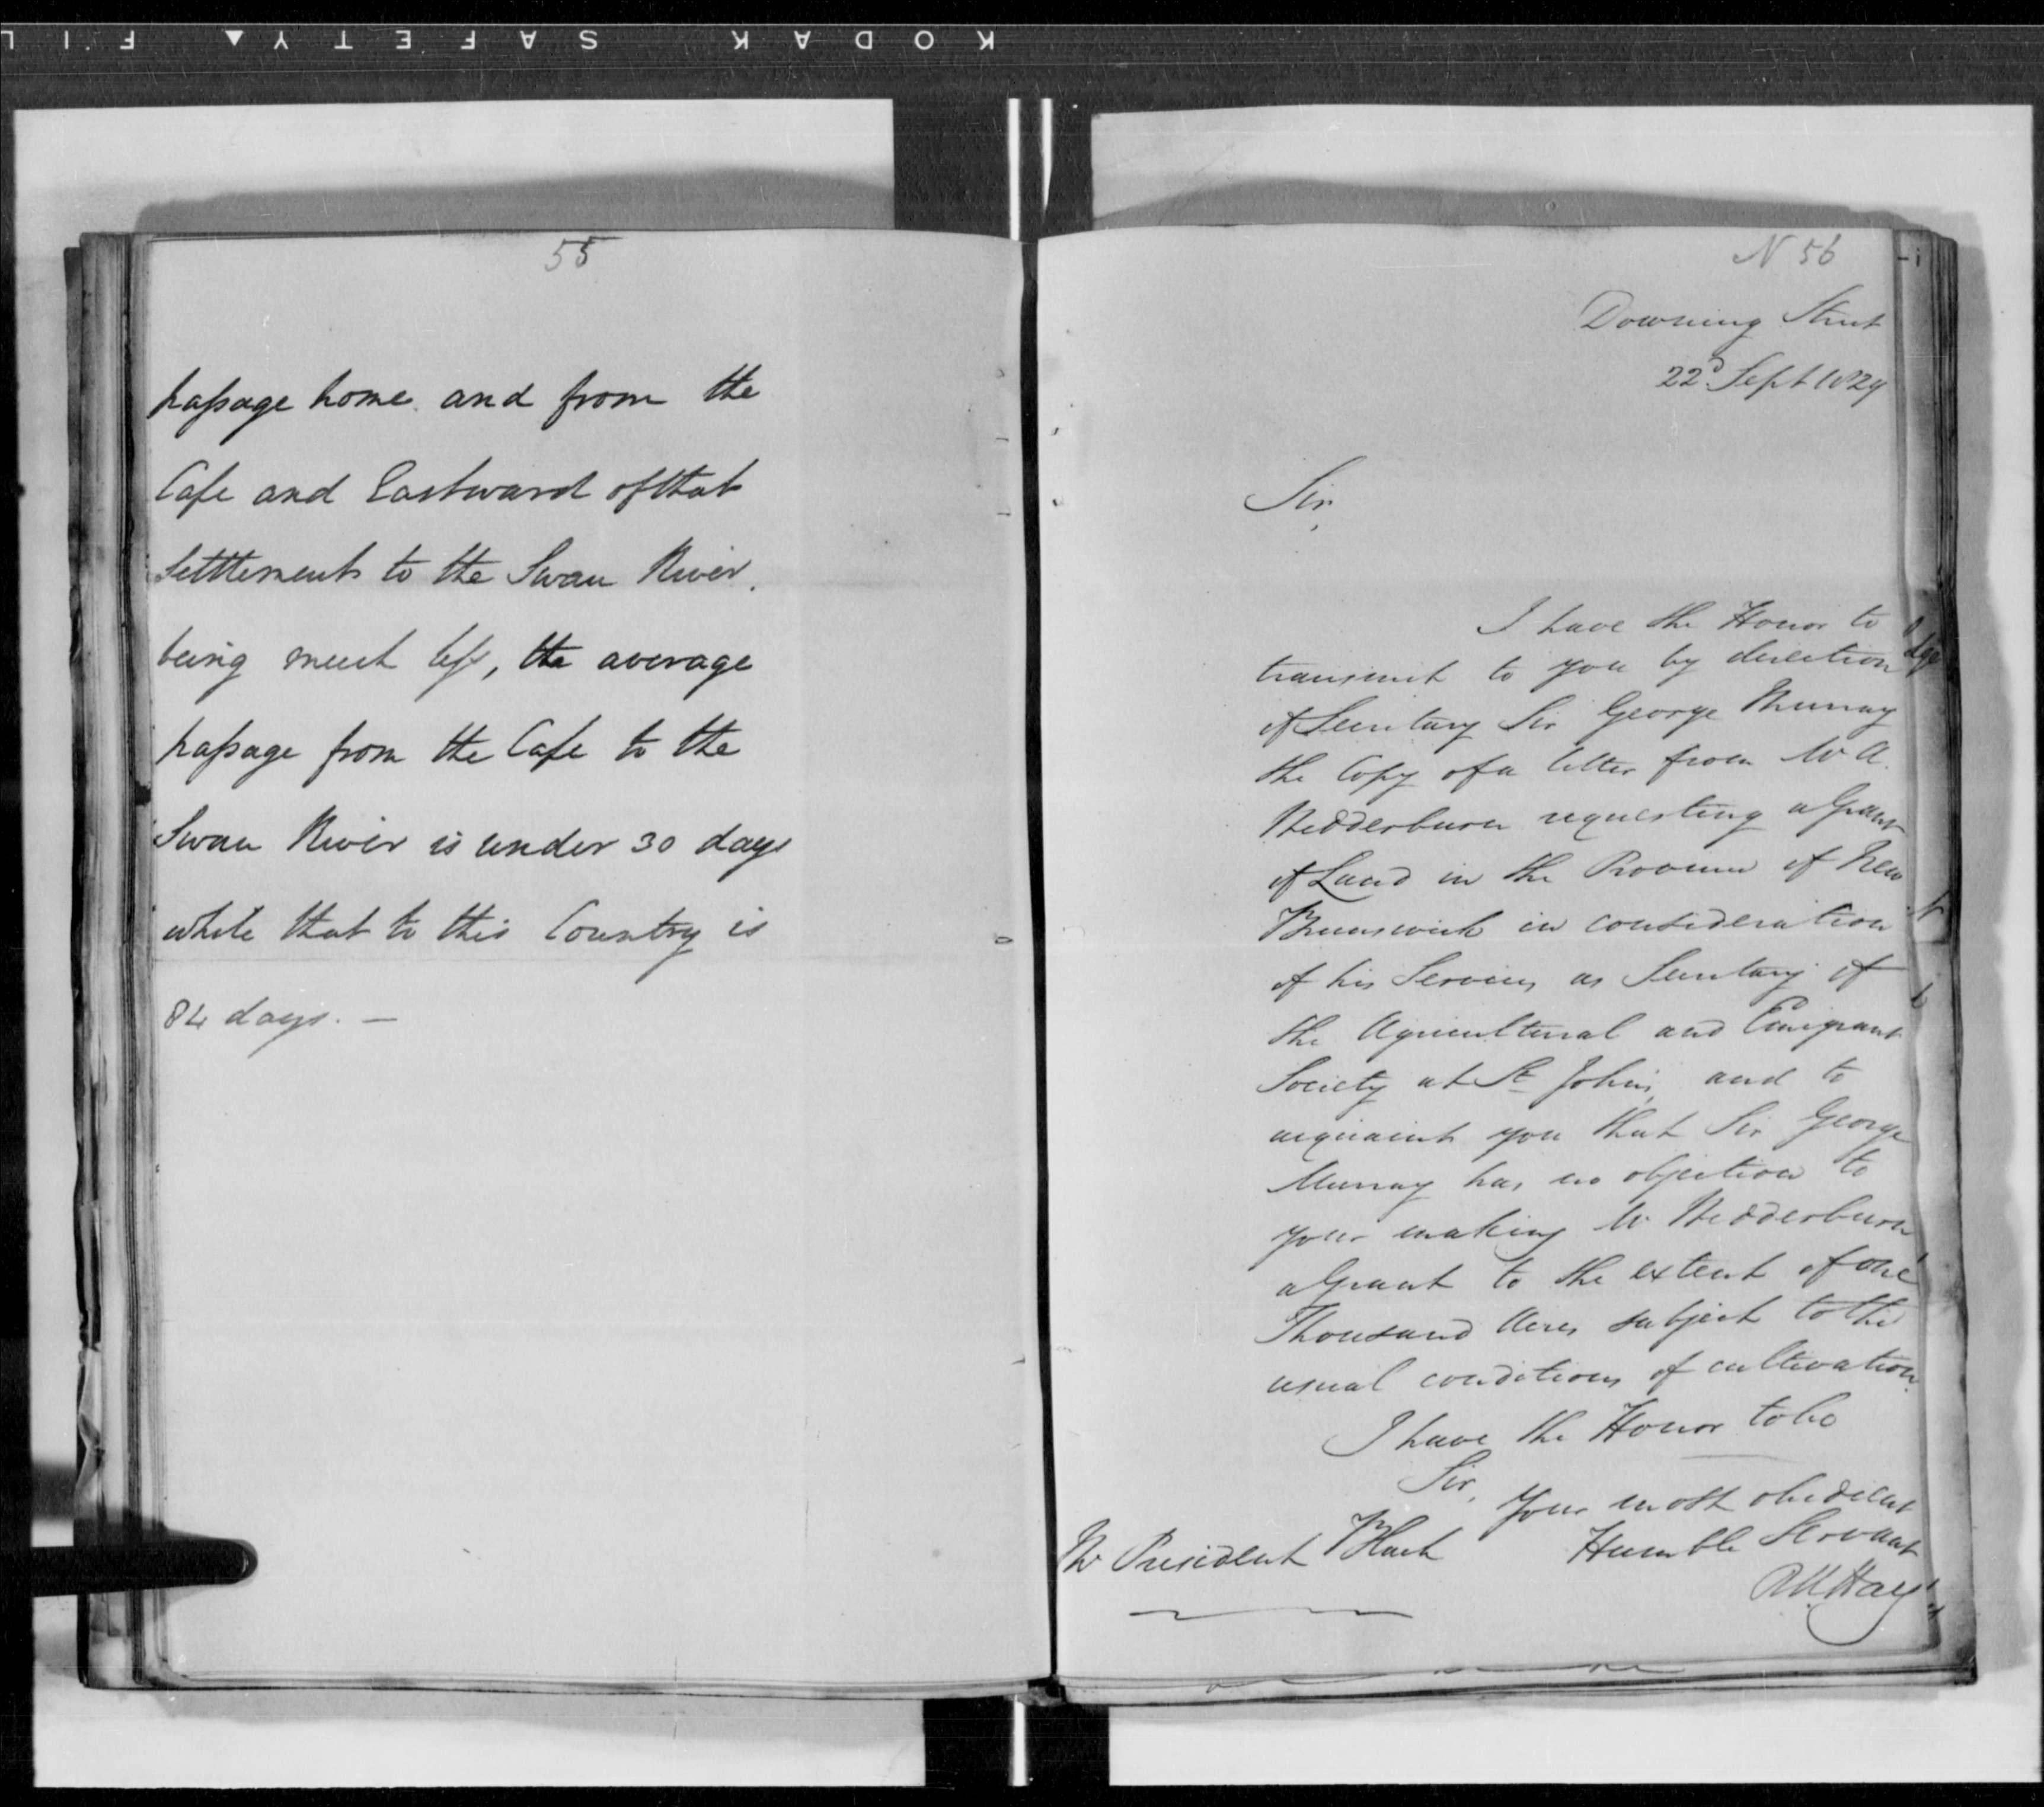 KODAK SAFETY ▲ FIL
55
passage home and from the
Cape and Eastward of that
Settlement to the Swan River.
being much less, the average
passage from the Cape to the
Swan River is under 30 days
while that to this Country is
84 days. —
N 56
Downing Street
22d Sept 1829
Sir,
I have the Honor to
transmit to you by direction
of Secretary Sir George Murray
the Copy of a letter from Mr A.
Wedderburn requesting a Grant
of Land in the Province of New
Brunswick in consideration
of his Services as Secretary of
the Agricultural and Emigrant
Society at St John's, and to
acquaint you that Sir George
Murray has no objection to
your making Mr Wedderburn
a Grant to the extent of one
Thousand Acres subject to the
usual conditions of cultivation.
I have the Honor to be
Sir,
Your most obedient
Humble Servant
RW Hay
Mr President Black